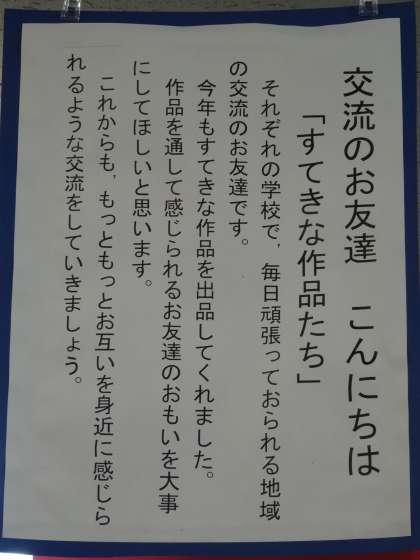 交流のお友達　こんにちは
「すてきな作品たち」
それぞれの学校で、毎日頑張っておられる地域
の交流のお友達です。
今年もすてきな作品を出品してくれました。
作品を通して感じられるお友達のおもいを大事
にしてほしいと思います。
これからも、もっともっとお互いを身近に感じら
れるような交流をしていきましょう。